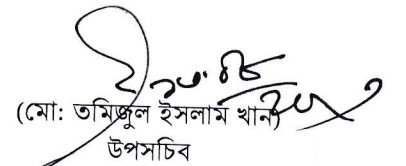 (মো: তমিজুল ইসলাম খান)
উপসচিব